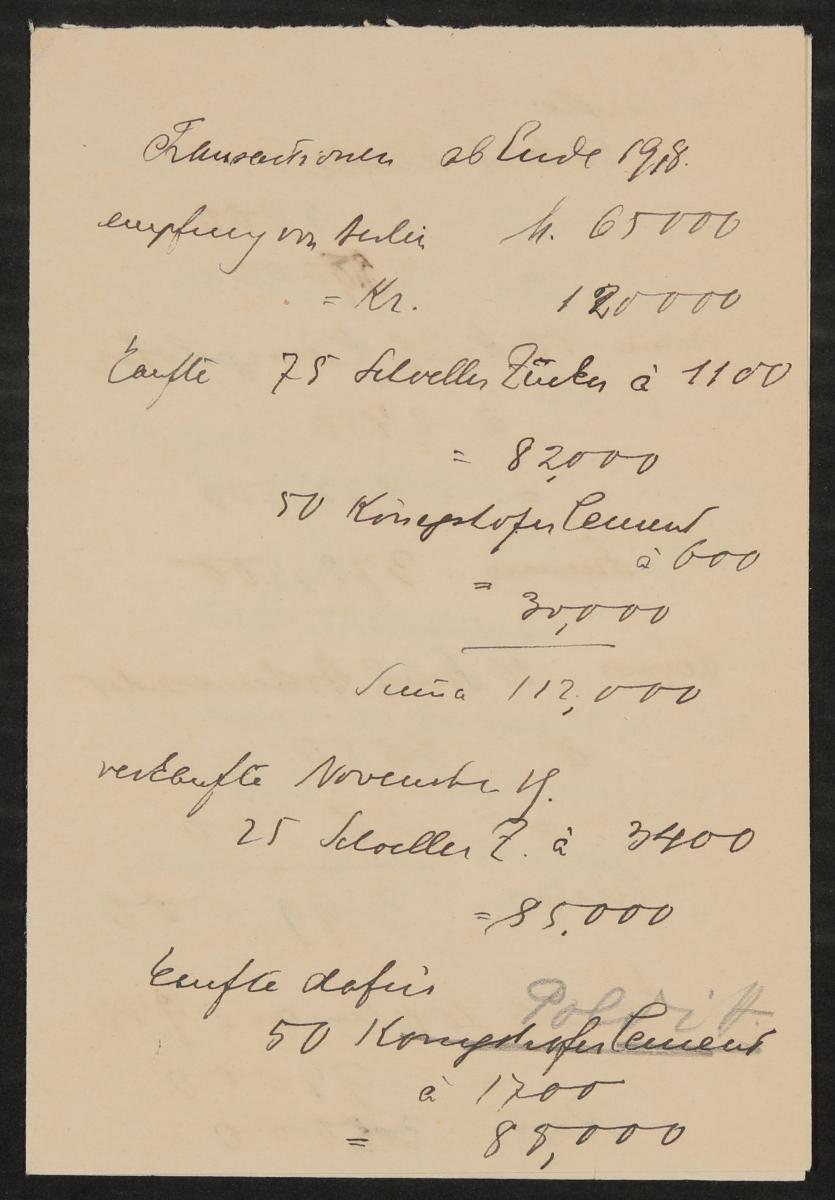 Transactionen ab Ende 1918.
empfing von Berlin M. 65000
= Kr. 120000
kaufte 75 Schoeller Zucker à 1100
= 82,000
50 Königshofer Cement
à 600
=
30,000
Suma 112,000
verkaufte November 19.
25 Schoeller Z. à 3400
= 85,000
kaufte dafür
Poldi H.
50 Königshofer Cement
à 1700
= 85,000